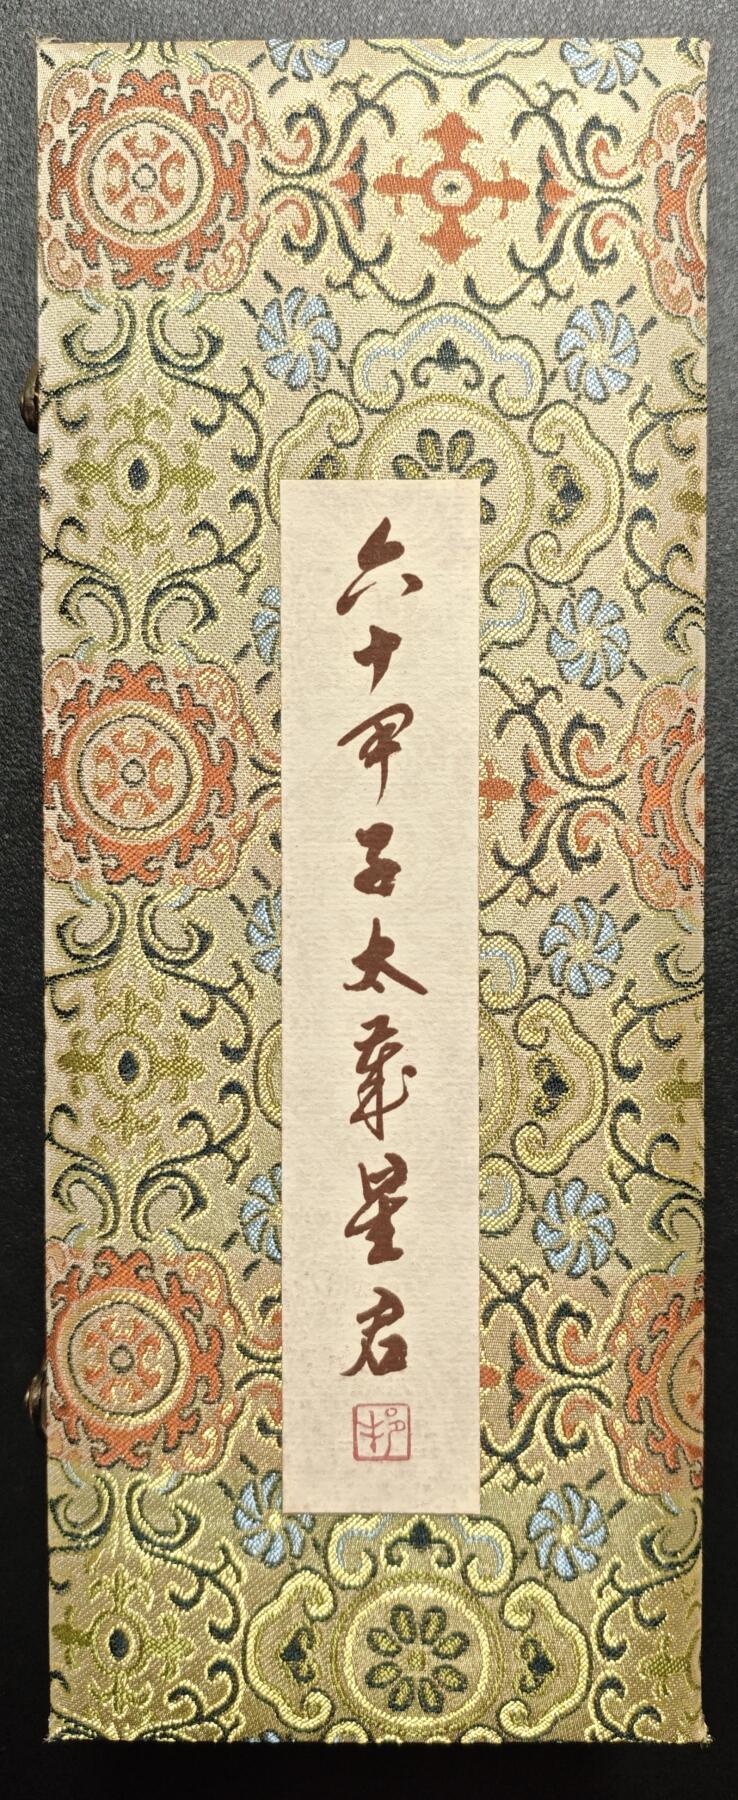 六十甲子太歲星君